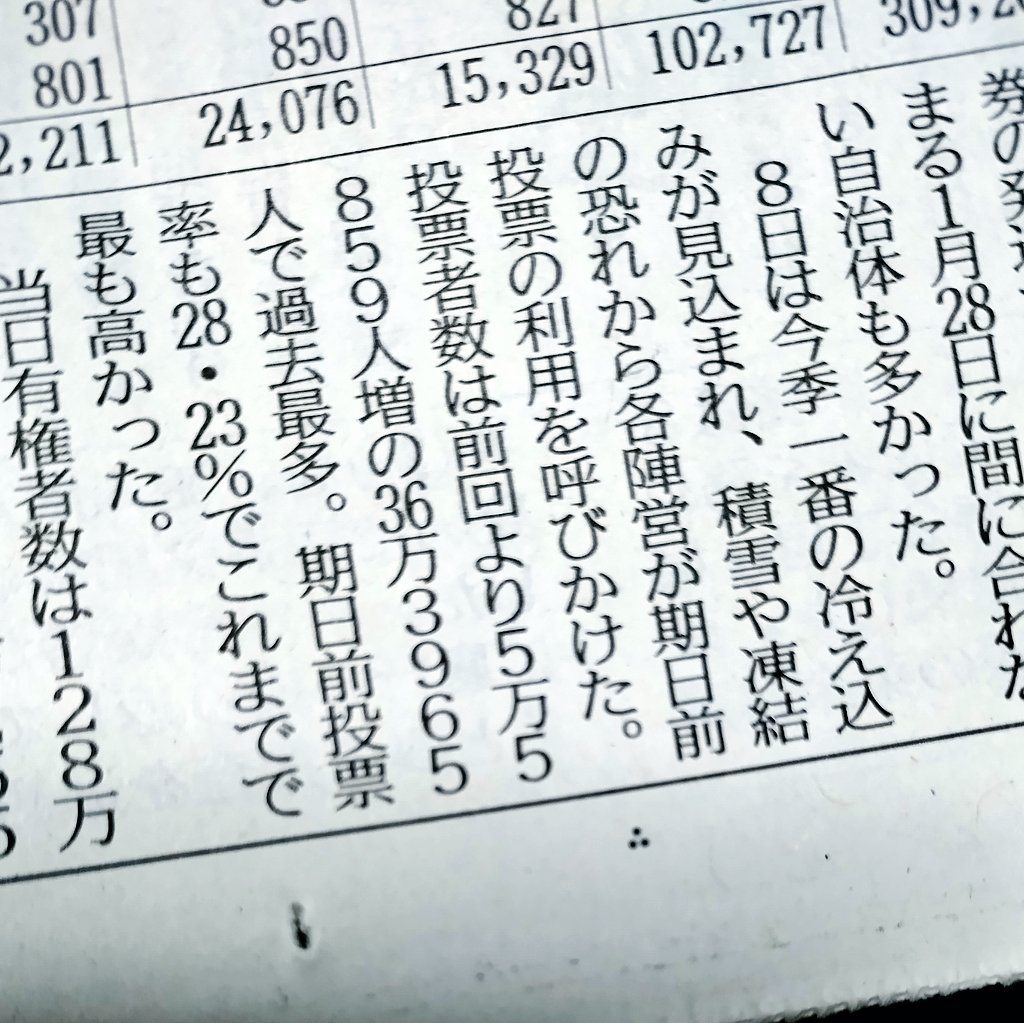 307
850
827
801
2,211
24,076
15,329
102,727
券の発送
まる1月28日に間に合わな
い自治体も多かった。
8日は今季一番の冷え込
みが見込まれ、積雪や凍結
の恐れから各陣営が期日前
投票の利用を呼びかけた。
投票者数は前回より5万5
859人増の36万3965
人で過去最多。期日前投票
率も28・23%でこれまでで
最も高かった。
当日有権者数は128万